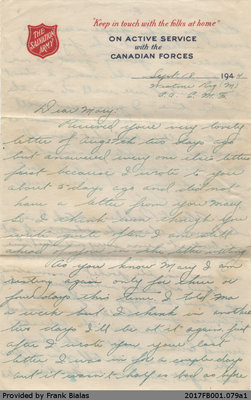 THE SALVATION ARMY
"Keep in touch with the folks at home"
ON ACTIVE SERVICE
with the
CANADIAN FORCES
Sept. 1944
Dear Mary:
Received your very lovely
letter of Aug. two days ago
but answered every one else's letter
first because I wrote to you
about 5 days ago and did not
have a letter from you Mary
So I think even though you
quite often I am still
letter writing
As you know Mary I am
resting again only for three or
four days this time. I told ma
a week but I think in another
two days I'll be at it again. Just
after I wrote you your last
letter I was in for a couple days
but it wasn't half as bad as before
Provided by Frank Bialas
2017FB001.079a1